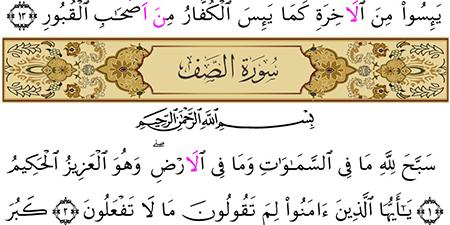 يَئِسُوا۟ مِنَ ٱلْءَاخِرَةِ كَمَا يَئِسَ ٱلْكُفَّارُ مِنْ أَصْحَٰبِ ٱلْقُبُورِ ١٣
سُورَةُ الصَّفِّ
بِسْمِ ٱللَّهِ ٱلرَّحْمَٰنِ ٱلرَّحِيمِ
سَبَّحَ لِلَّهِ مَا فِى ٱلسَّمَٰوَٰتِ وَمَا فِى ٱلْأَرْضِ ۖ وَهُوَ ٱلْعَزِيزُ ٱلْحَكِيمُ
١ يَٰٓأَيُّهَا ٱلَّذِينَ ءَامَنُوا۟ لِمَ تَقُولُونَ مَا لَا تَفْعَلُونَ ٢ كَبُرَ